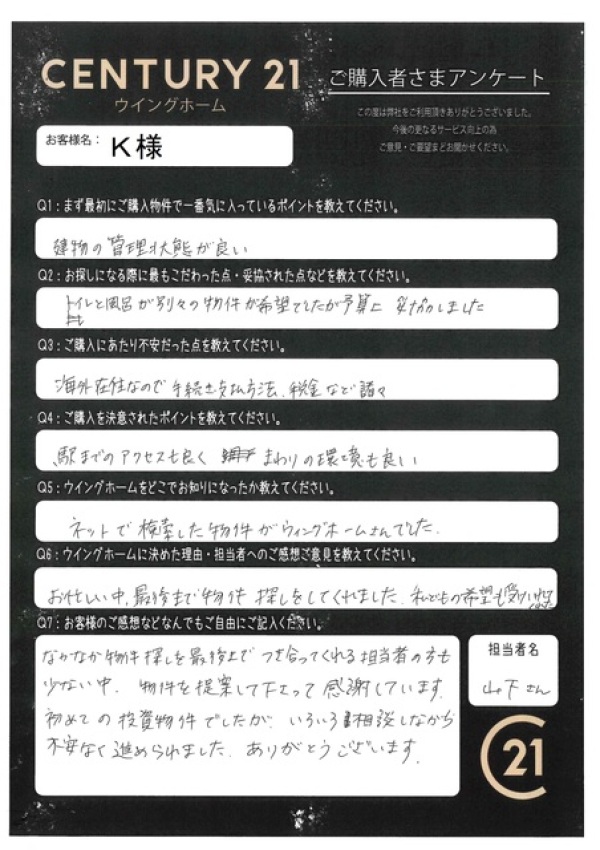 CENTURY 21
ウイングホーム
ご購入者さまアンケート
この度は弊社をご利用頂きありがとうございました。
今後の更なるサービス向上の為
ご意見・ご要望までお聞かせください。
お客様名： K様
Q1：まず最初にご購入物件で一番気に入っているポイントを教えてください。
建物の管理状態が良い
Q2：お探しになる際に最もこだわった点・妥協された点などを教えてください。
トイレと風呂が別々の物件が希望でしたが予算上 妥協しました
Q3：ご購入にあたり不安だった点を教えてください。
海外在住なので手続き支払方法、税金など諸々
Q4：ご購入を決意されたポイントを教えてください。
駅までのアクセスも良く まわりの環境も良い
Q5：ウイングホームをどこでお知りになったか教えてください。
ネットで検索した物件がウィングホームさんでした。
Q6：ウイングホームに決めた理由・担当者へのご感想ご意見を教えてください。
お忙しい中、最後まで物件探しをしてくれました。私どもの希望も受け入れ
Q7：お客様のご感想などなんでもご自由にご記入ください。
なかなか物件探しを最後までつき合ってくれる担当者の方も
少ない中、物件を提案して下さって感謝しています。
初めての投資物件でしたが、いろいろ相談しながら
不安なく進められました。ありがとうございます。
担当者名
山下さん
21